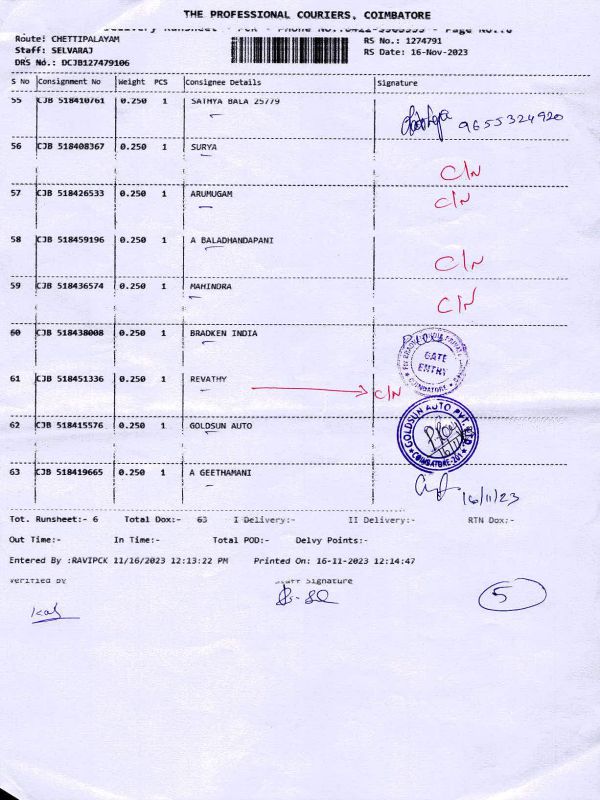 THE PROFESSIONAL COURIERS, COIMBATORE
Route: CHETTIPALAYAM RS No.: 1274791
Staff: SELVARAJ RS Date: 16-Nov-2023
DRS No.: DCJB127479106
S No Consignment No Weight PCS Consignee Details Signature
55 CJB 518410761 0.250 1 SATHYA BALA 25779
9655324920
56 CJB 518408367 0.250 1 SURYA C/N
57 CJB 518426533 0.250 1 ARUMUGAM C/N
58 CJB 518459196 0.250 1 A BALADHANDAPANI C/N
59 CJB 518436574 0.250 1 MAHINDRA C/N
60 CJB 518438008 0.250 1 BRADKEN INDIA
GATE ENTRY
COIMBATORE
61 CJB 518451336 0.250 1 REVATHY C/N
62 CJB 518415576 0.250 1 GOLDSUN AUTO
GOLDSUN AUTO PVT. LTD.
COIMBATORE-201
63 CJB 518419665 0.250 1 A GEETHAMANI
16/11/23
Tot. Runsheet:- 6 Total Dox:- 63 I Delivery:- II Delivery:- RTN Dox:-
Out Time:- In Time:- Total POD:- Delvy Points:-
Entered By :RAVIPCK 11/16/2023 12:13:22 PM Printed On: 16-11-2023 12:14:47
Verified by Staff Signature
5